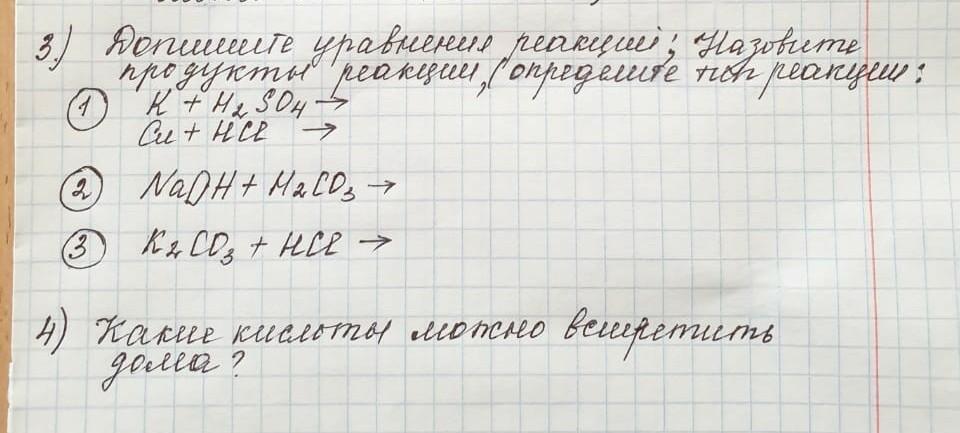 3.) Допишите уравнения реакций; Назовите
продукты реакции, (определите тип реакции:
① K + H₂SO₄ →
Cu + HCl →
② NaOH + H₂CO₃ →
③ K₂CO₃ + HCl →
4) Какие кислоты можно встретить
дома?